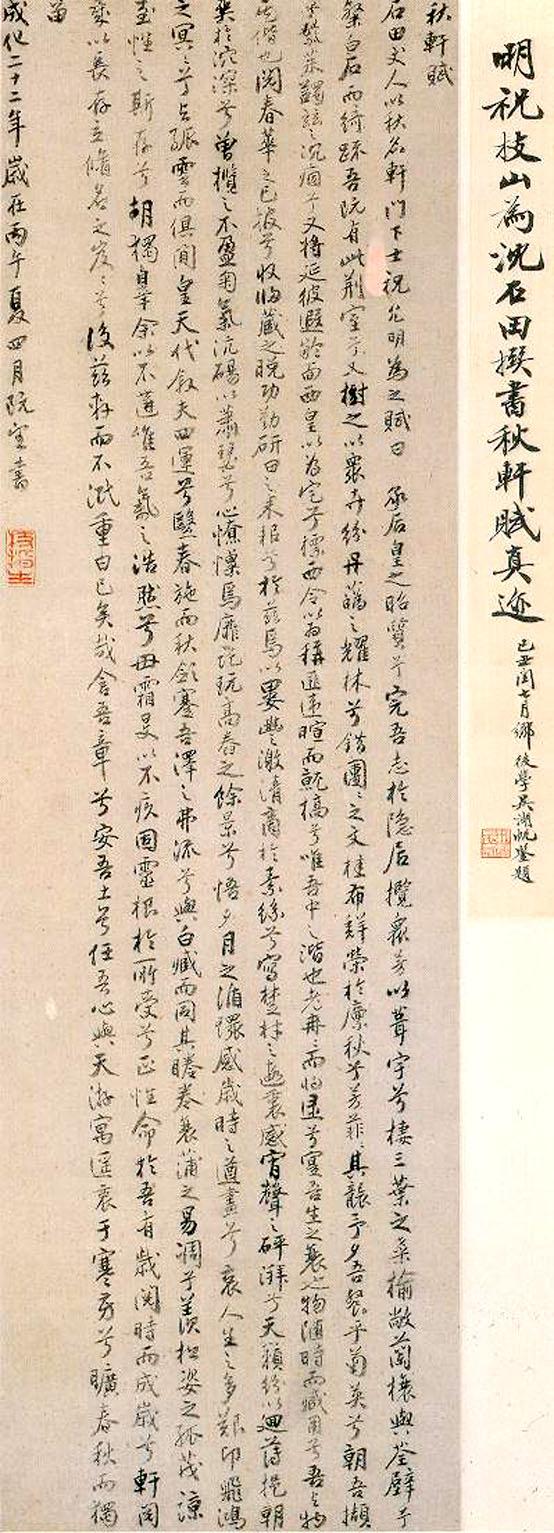 明祝枝山為沈石田撰書秋軒賦真迹
己丑閏七月鄉後學吳湖帆鑒題
秋軒賦
石田丈人以秋名軒門下士祝允明為之賦曰 承后皇之昭質兮完吾志於隱居攬眾芳以葺宇兮棲三葉之桑榆敞蘭櫋與荃壁兮
粲白石而綺疏吾既有此荊室兮又樹之以眾卉紛丹蘤之耀林兮錯團團之文桂布鮮榮於凜秋兮芳菲菲其襲予夕吾餐乎菊英兮朝吾擷
沉痼兮又將延彼遐齡面西皇以為宅兮標西令以為稱匪違暄而就槁兮唯吾中之諧也老冉冉而將逮兮寔吾生之裘也物隨時而臧用兮吾與物
偕也閱春華之已披兮收臨藏之晚功勤研田之未報兮於茲焉以屢豐激清商於素絲兮寫楚林之逸哀感宵聲之砰湃兮天籟紛以迴薄挹朝
爽於沆深兮曾攬之不盈匊氣沉碭以蕭瑟兮心憭慄焉靡託玩高舂之餘景兮悟夕月之循環感歲時之遒盡兮哀人生之多艱仰飛鴻
之冥冥兮與孤雲而俱閒皇天代敘夫四運兮繄春施而秋斂蹇吾澤之弗流兮與白臧而同其睠卷衰蒲之易凋兮羨松姿之孤茂諒
至性之斯存兮胡獨皋余以不遘維吾氣之浩然兮毋霜旻以不疚固靈根於所受兮正性命於吾有歲閱時而成歲兮軒閱
歲以長存立脩名之岌岌兮後茲軒而不泯重曰已矣哉含吾章兮安吾土兮任吾心與天游寓遥裘于寒芳兮曠春秋而獨
留
成化二十二年歲在丙午夏四月既望書